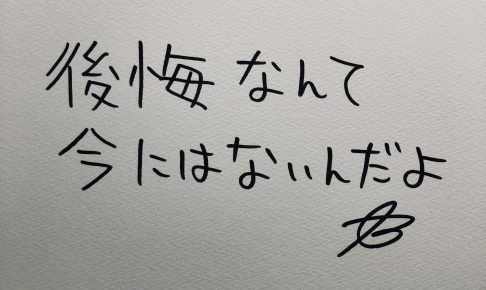 後悔なんて
今にはないんだよ